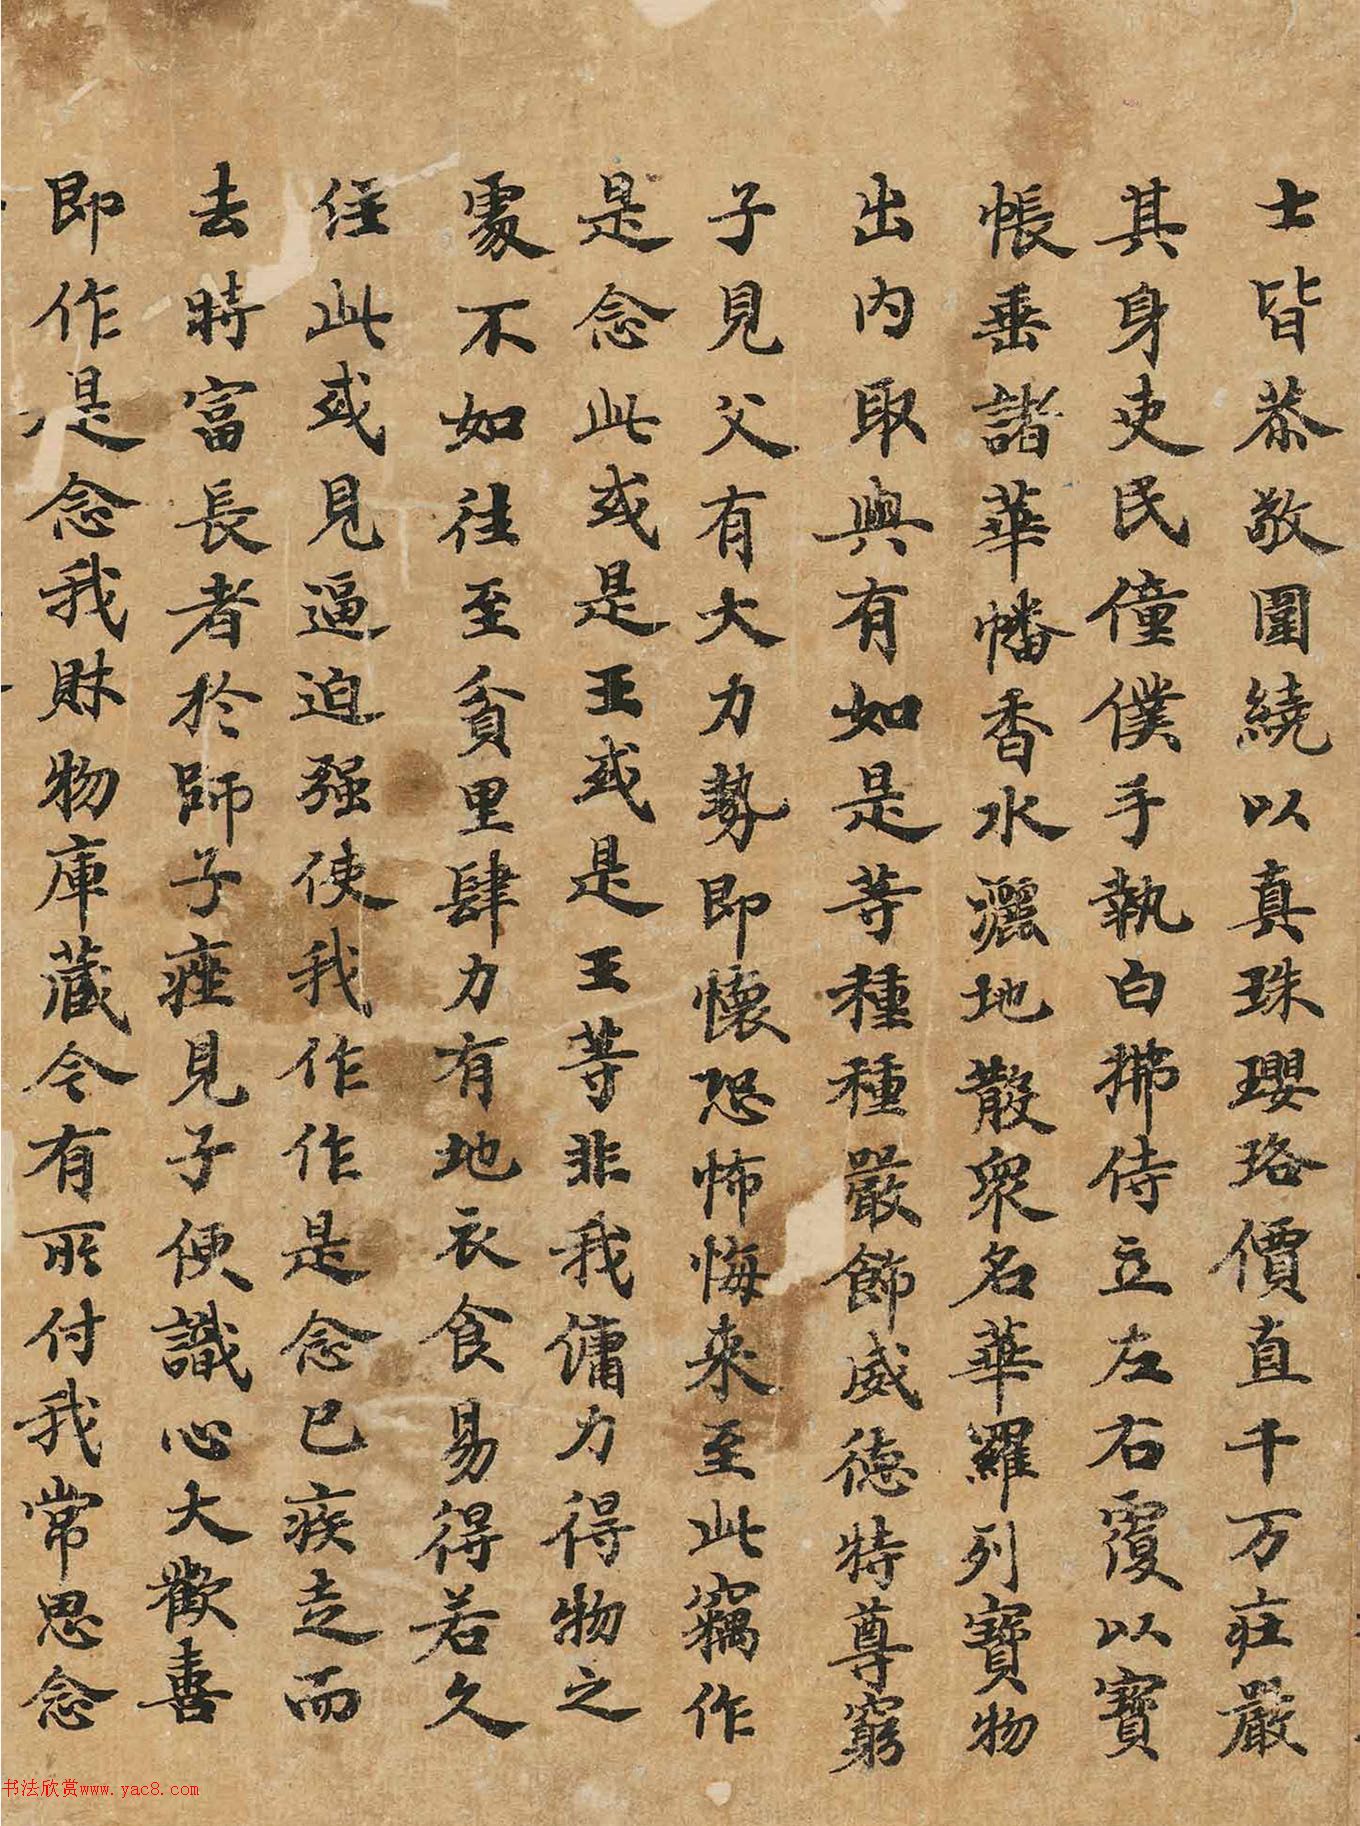 士皆恭敬圍繞以真珠瓔珞價直千万莊嚴
其身吏民僮僕手執白拂侍立左右覆以寶
帳垂諸華幡香水灑地散衆名華羅列寶物
出内取與有如是等種種嚴飾威德特尊窮
子見父有大力勢即懷恐怖悔来至此竊作
是念此或是王或是王等非我傭力得物之
處不如往至貧里肆力有地衣食易得若久
住此或見逼迫强使我作作是念已疾走而
去時富長者於師子座見子便識心大歡喜
即作是念我財物庫藏今有所付我常思念
书法欣赏www.yac8.com